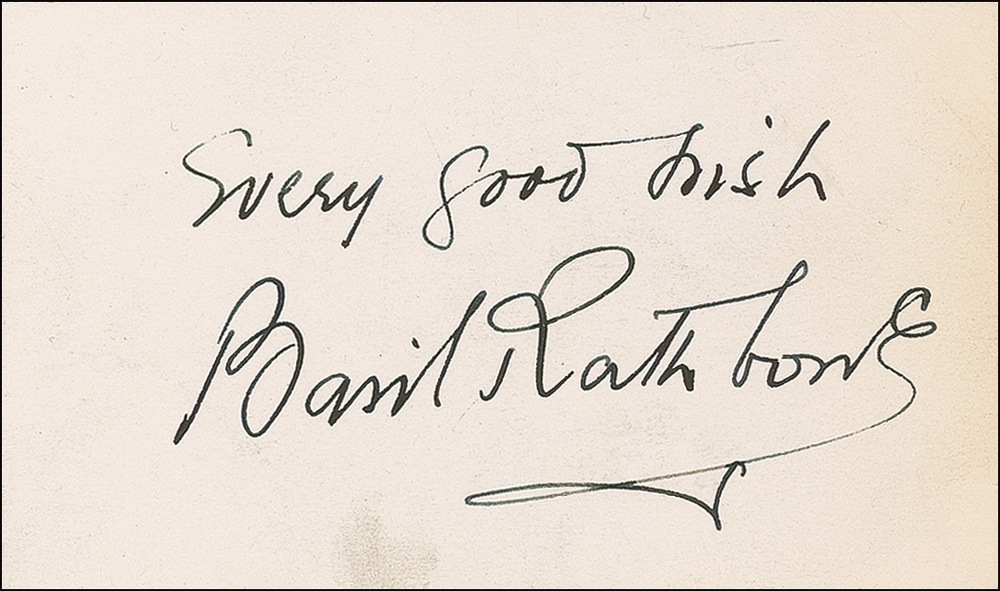 Every good wish
Basil Rathbone